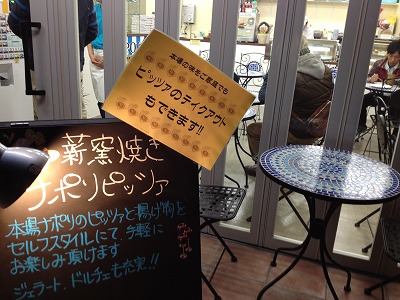 本場の味をご家庭でも
ピッツァのテイクアウト
もできます!!
薪窯焼き
ナポリピッツァ
本場ナポリのピッツァと揚げ物を
セルフスタイルにて手軽に
お楽しみ頂けます
ジェラート、ドルチェも充実!!